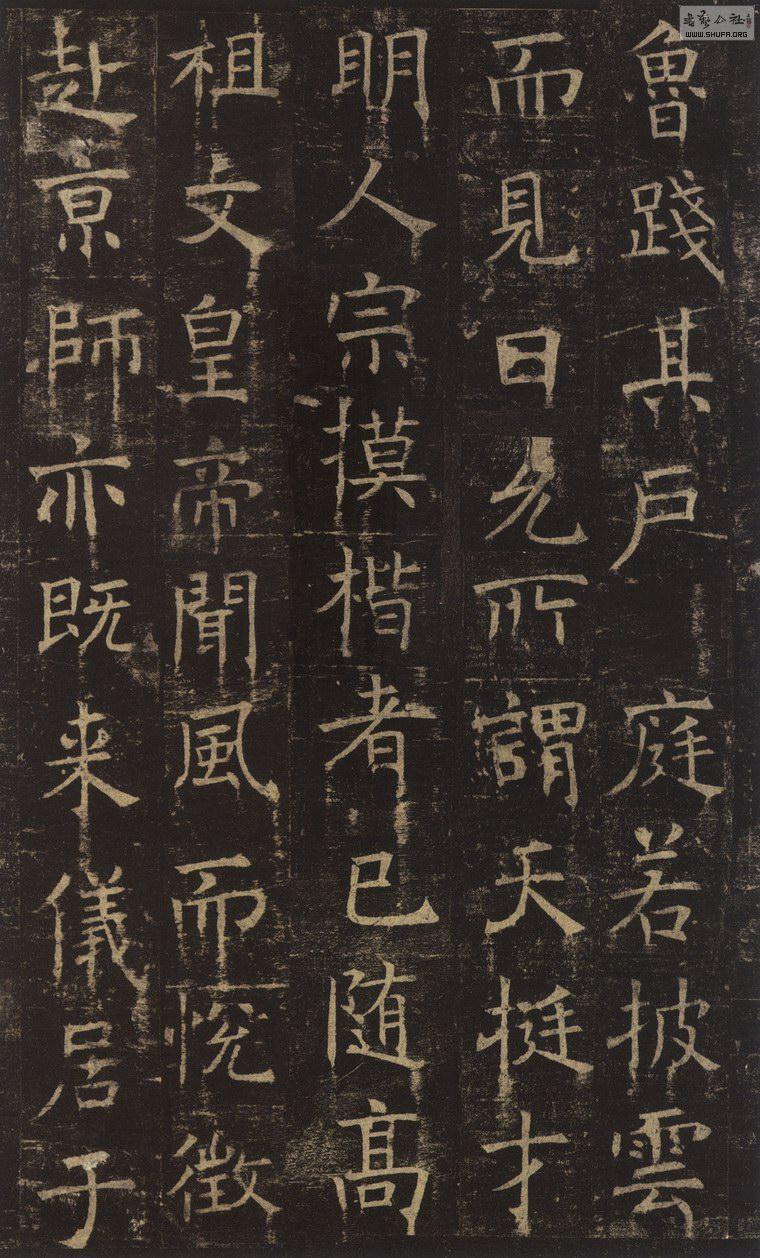 魯踐其戶庭若披雲
而見日允所謂天挺才
明人宗摸楷者已随高
祖文皇帝聞風而悅徵
赴京師亦既来儀居于
WWW.SHUFA.ORG